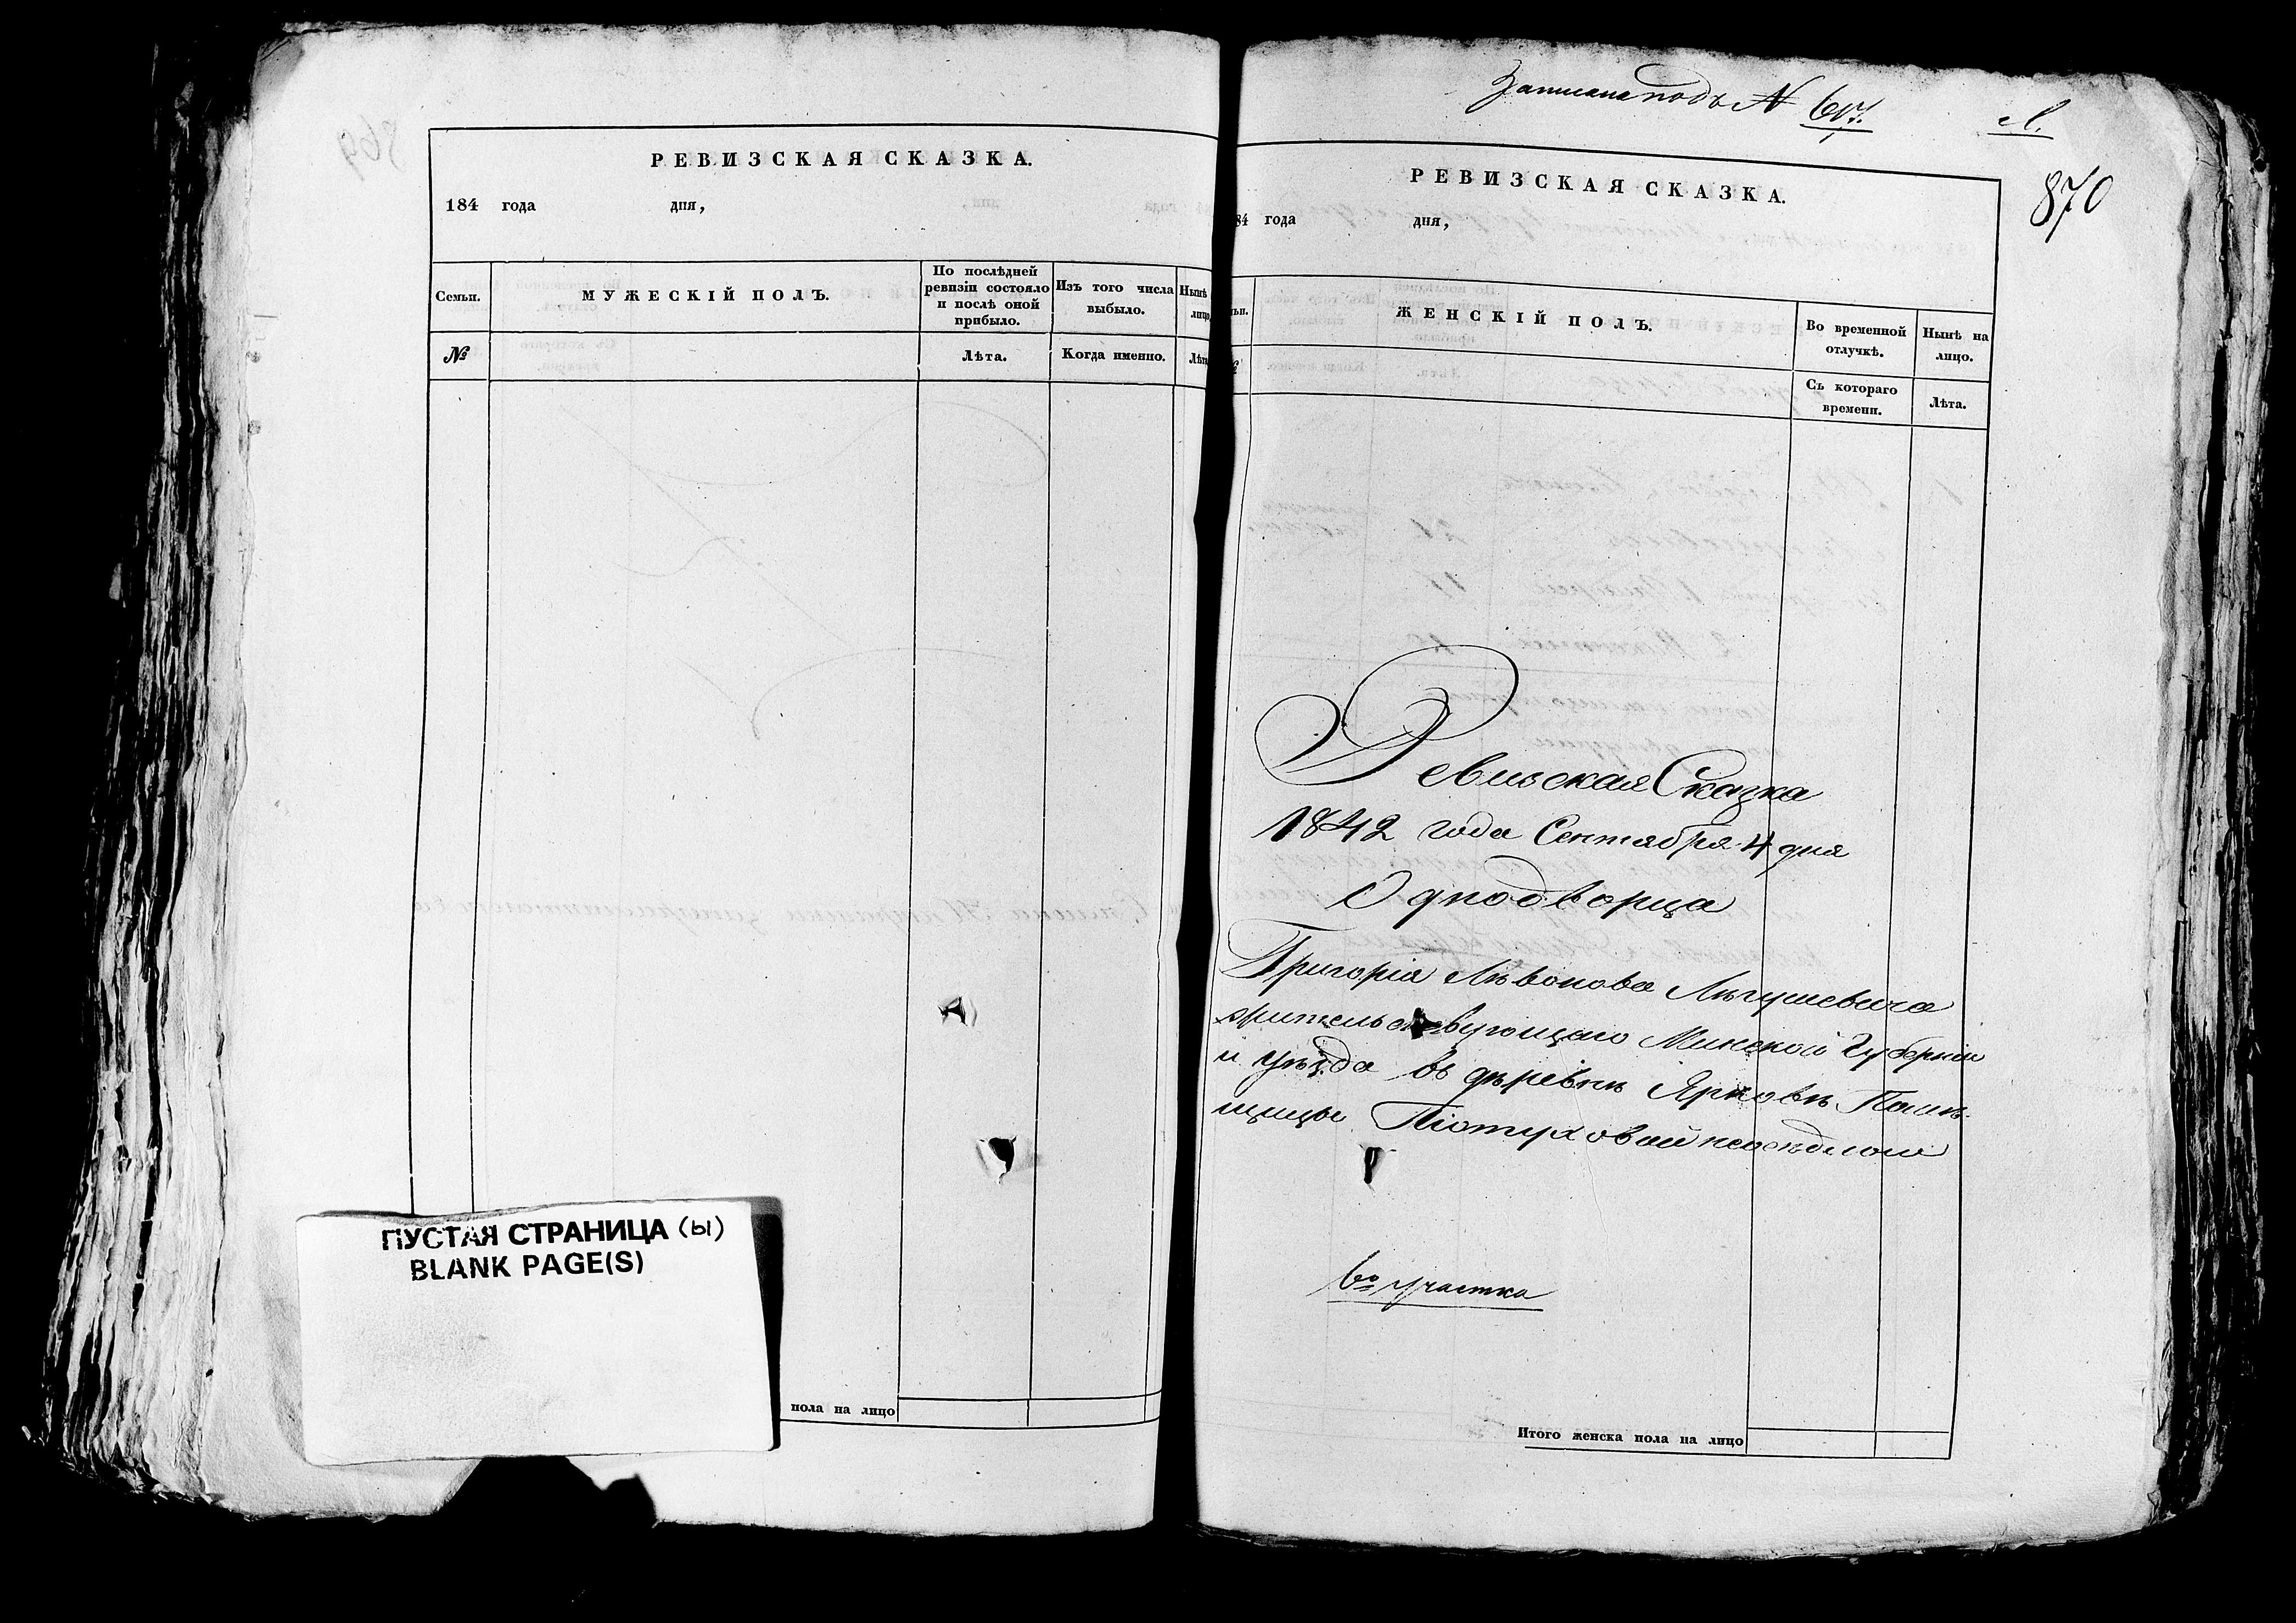 РЕВИЗСКАЯ СКАЗКА.
184 года дня,
Семьи.
МУЖЕСКІЙ ПОЛЪ.
По послѣдней
ревизіи состояло
и послѣ оной
прибыло.
Изъ того числа
выбыло.
Нынѣ
лицо
№
Лѣта.
Когда именно.
Лѣта
ПУСТАЯ СТРАНИЦА (ы)
BLANK PAGE(S)
пола на лицо
Записана подъ №
870
РЕВИЗСКАЯ СКАЗКА.
84 года дня,
ЖЕНСКІЙ ПОЛЪ.
Во временной
отлучкѣ.
Нынѣ на
лицо.
Съ котораго
времени.
Лѣта.
Ревизская Сказка
1842 года Сентября 4 дня
Однодворца
Григорія
жительствующаго Минской Губерніи
и уѣзда въ деревнѣ Помѣ-
щицы
6го участка
Итого женска пола на лицо